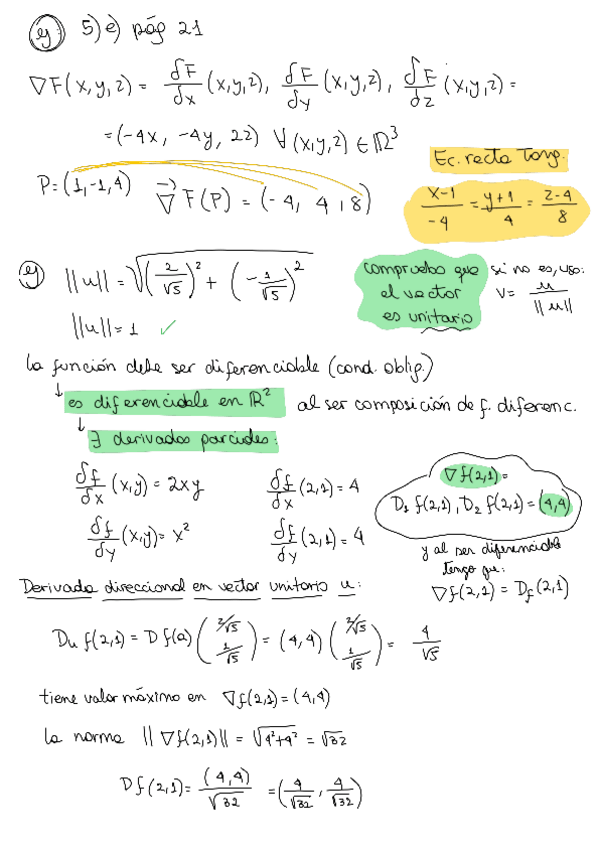 ej: 5) e) pág 21
∇F(x,y,z) = δF/δx (x,y,z), δF/δy (x,y,z), δF/δz (x,y,z) =
= (-4x, -4y, 2z) ∀(x,y,z) ∈ ℝ³
Ec. recta Tang.
P = (1,-1,4) ∇F(P) = (-4, 4, 8)
x-1/-4 = y+1/4 = z-4/8
ej ||u|| = √((2/√5)² + (-1/√5)²)
compruebo que el vector es unitario
si no es, uso: v = u/||u||
||u|| = 1 ✓
la función debe ser diferenciable (cond. oblig.)
↓ es diferenciable en ℝ² al ser composición de f. diferenc.
↓ ∃ derivadas parciales:
δf/δx (x,y) = 2xy δf/δx (2,1) = 4
δf/δy (x,y) = x² δf/δy (2,1) = 4
∇f(2,1) =
D₁ f(2,1), D₂ f(2,1) = (4,4)
y al ser diferenciable
tengo que:
∇f(2,1) = Df(2,1)
Derivada direccional en vector unitario u:
Du f(2,1) = D f(a) (2/√5 1/√5) = (4,4) (2/√5 1/√5) = 4/√5
tiene valor máximo en ∇f(2,1) = (4,4)
la norma ||∇f(2,1)|| = √4²+4² = √32
Df(2,1) = (4,4)/√32 = (4/√32, 4/√32)